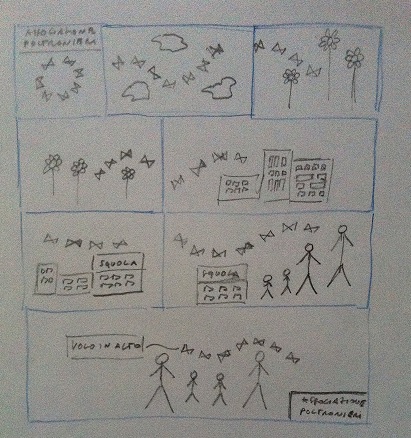 ASSOCIAZIONE
POLTRONIERI
SQUOLA
SQUOLA
VOLO IN ALTO
ASSOCIAZIONE
POLTRONIERI